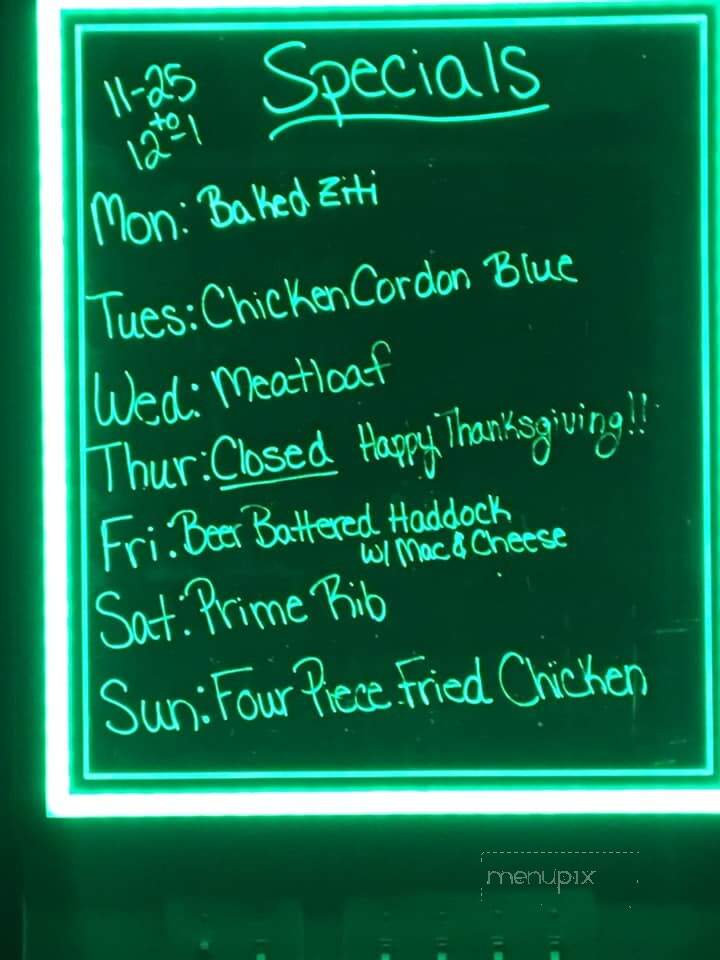 Specials
11-25
to
12-1
Mon: Baked Ziti
Tues: Chicken Cordon Blue
Wed: Meatloaf
Thur: Closed Happy Thanksgiving!!
Fri: Beer Battered Haddock
w/ Mac & Cheese
Sat: Prime Rib
Sun: Four Piece Fried Chicken
menupix